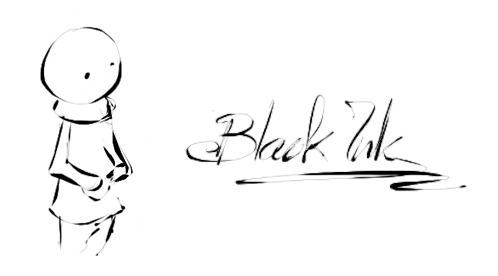 Black Ink